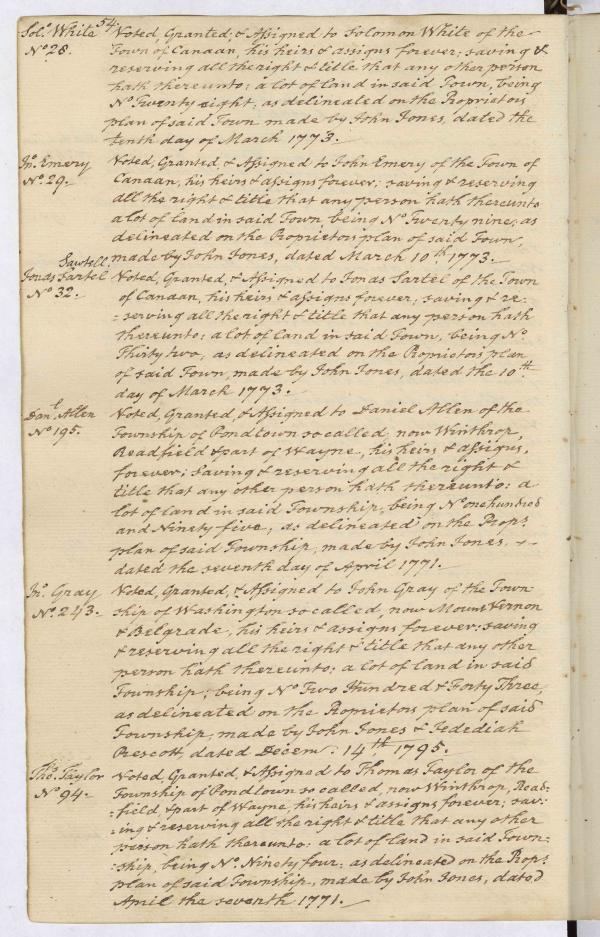 54.
Sol.° White Voted, Granted, & Assigned to Solomon White of the
N.° 28. Town of Canaan, his heirs & assigns forever; saving &
reserving all the right & title that any other person
hath thereunto; a lot of land in said Town, being
N.° Twenty eight; as delineated on the Proprietors
plan of said Town made by John Jones, dated the
tenth day of March 1773.
Jn.° Emery Voted, Granted, & Assigned to John Emery of the Town of
N.° 29. Canaan, his heirs & assigns forever; saving & reserving
all the right & title that any person hath thereunto
a lot of land in said Town being N.° Twenty nine; as
delineated on the Proprietors plan of said Town,
made by John Jones, dated March 10.th 1773.
Sawtell.
Jonas Sartel Voted, Granted, & Assigned to Jonas Sartel of the Town
N.° 32. of Canaan, his heirs & assigns forever; saving & re-
-serving all the right & title that any person hath
thereunto: a lot of land in said Town, being N.°
Thirty two, as delineated on the Proprietors plan
of said Town, made by John Jones, dated the 10.th
day of March 1773.
Dan.l Allen Voted, Granted, & Assigned to Daniel Allen of the
N.° 195. Township of Pondtown so called, now Winthrop,
Readfield & part of Wayne, his heirs & assigns,
forever; Saving & reserving all the right &
title that any other person hath thereunto: a
lot of land in said Township, being N.° one hundred
and Ninety five, as delineated on the Prop.s
plan of said Township, made by John Jones,
dated the seventh day of April 1771.
Jn.° Gray Voted, Granted, & Assigned to John Gray of the Town-
N.° 243. ship of Washington so called, now Mount Vernon
& Belgrade, his heirs & assigns forever: saving
& reserving all the right & title that any other
person hath thereunto; a lot of land in said
Township; being N.° Two Hundred & Forty Three,
as delineated on the Proprietors plan of said
Township, made by John Jones & Jedediah
Prescott, dated Decem: 14.th 1795.
Tho.s Taylor Voted, Granted, & Assigned to Thomas Taylor of the
N.° 94. Township of Pondtown so called, now Winthrop, Read-
-field & part of Wayne, his heirs & assigns forever; sav-
-ing & reserving all the right & title that any other
person hath thereunto: a lot of land in said Town-
-ship, being N.° Ninety four: as delineated on the Prop.s
plan of said Township, made by John Jones, dated
April the seventh 1771.